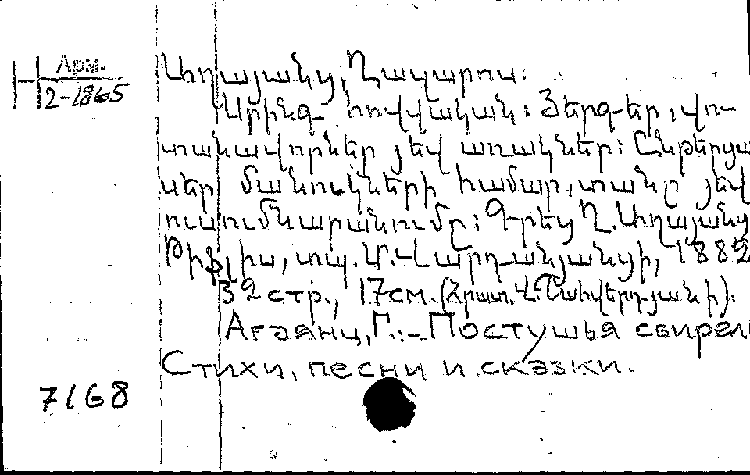 Арм.
2-1865
Աղայանց, Ղազարոս։
Սրինգ հովվական։ Յերգեր, վո-
տանավորներ յեվ առակներ։ Ընթերցա
մանուկների համար, տանը յեվ
ուսումնարանումը։ Գրեց Ղ. Աղայանց
Թիֆլիս, տպ. Մ. Վարդանյանցի, 1882
32 стр., 17см. (Հրատ. Վ. Շահվերդյանի).
Агаянц, Г. – Постушья свирель
Стихи, песни и сказки.
7168